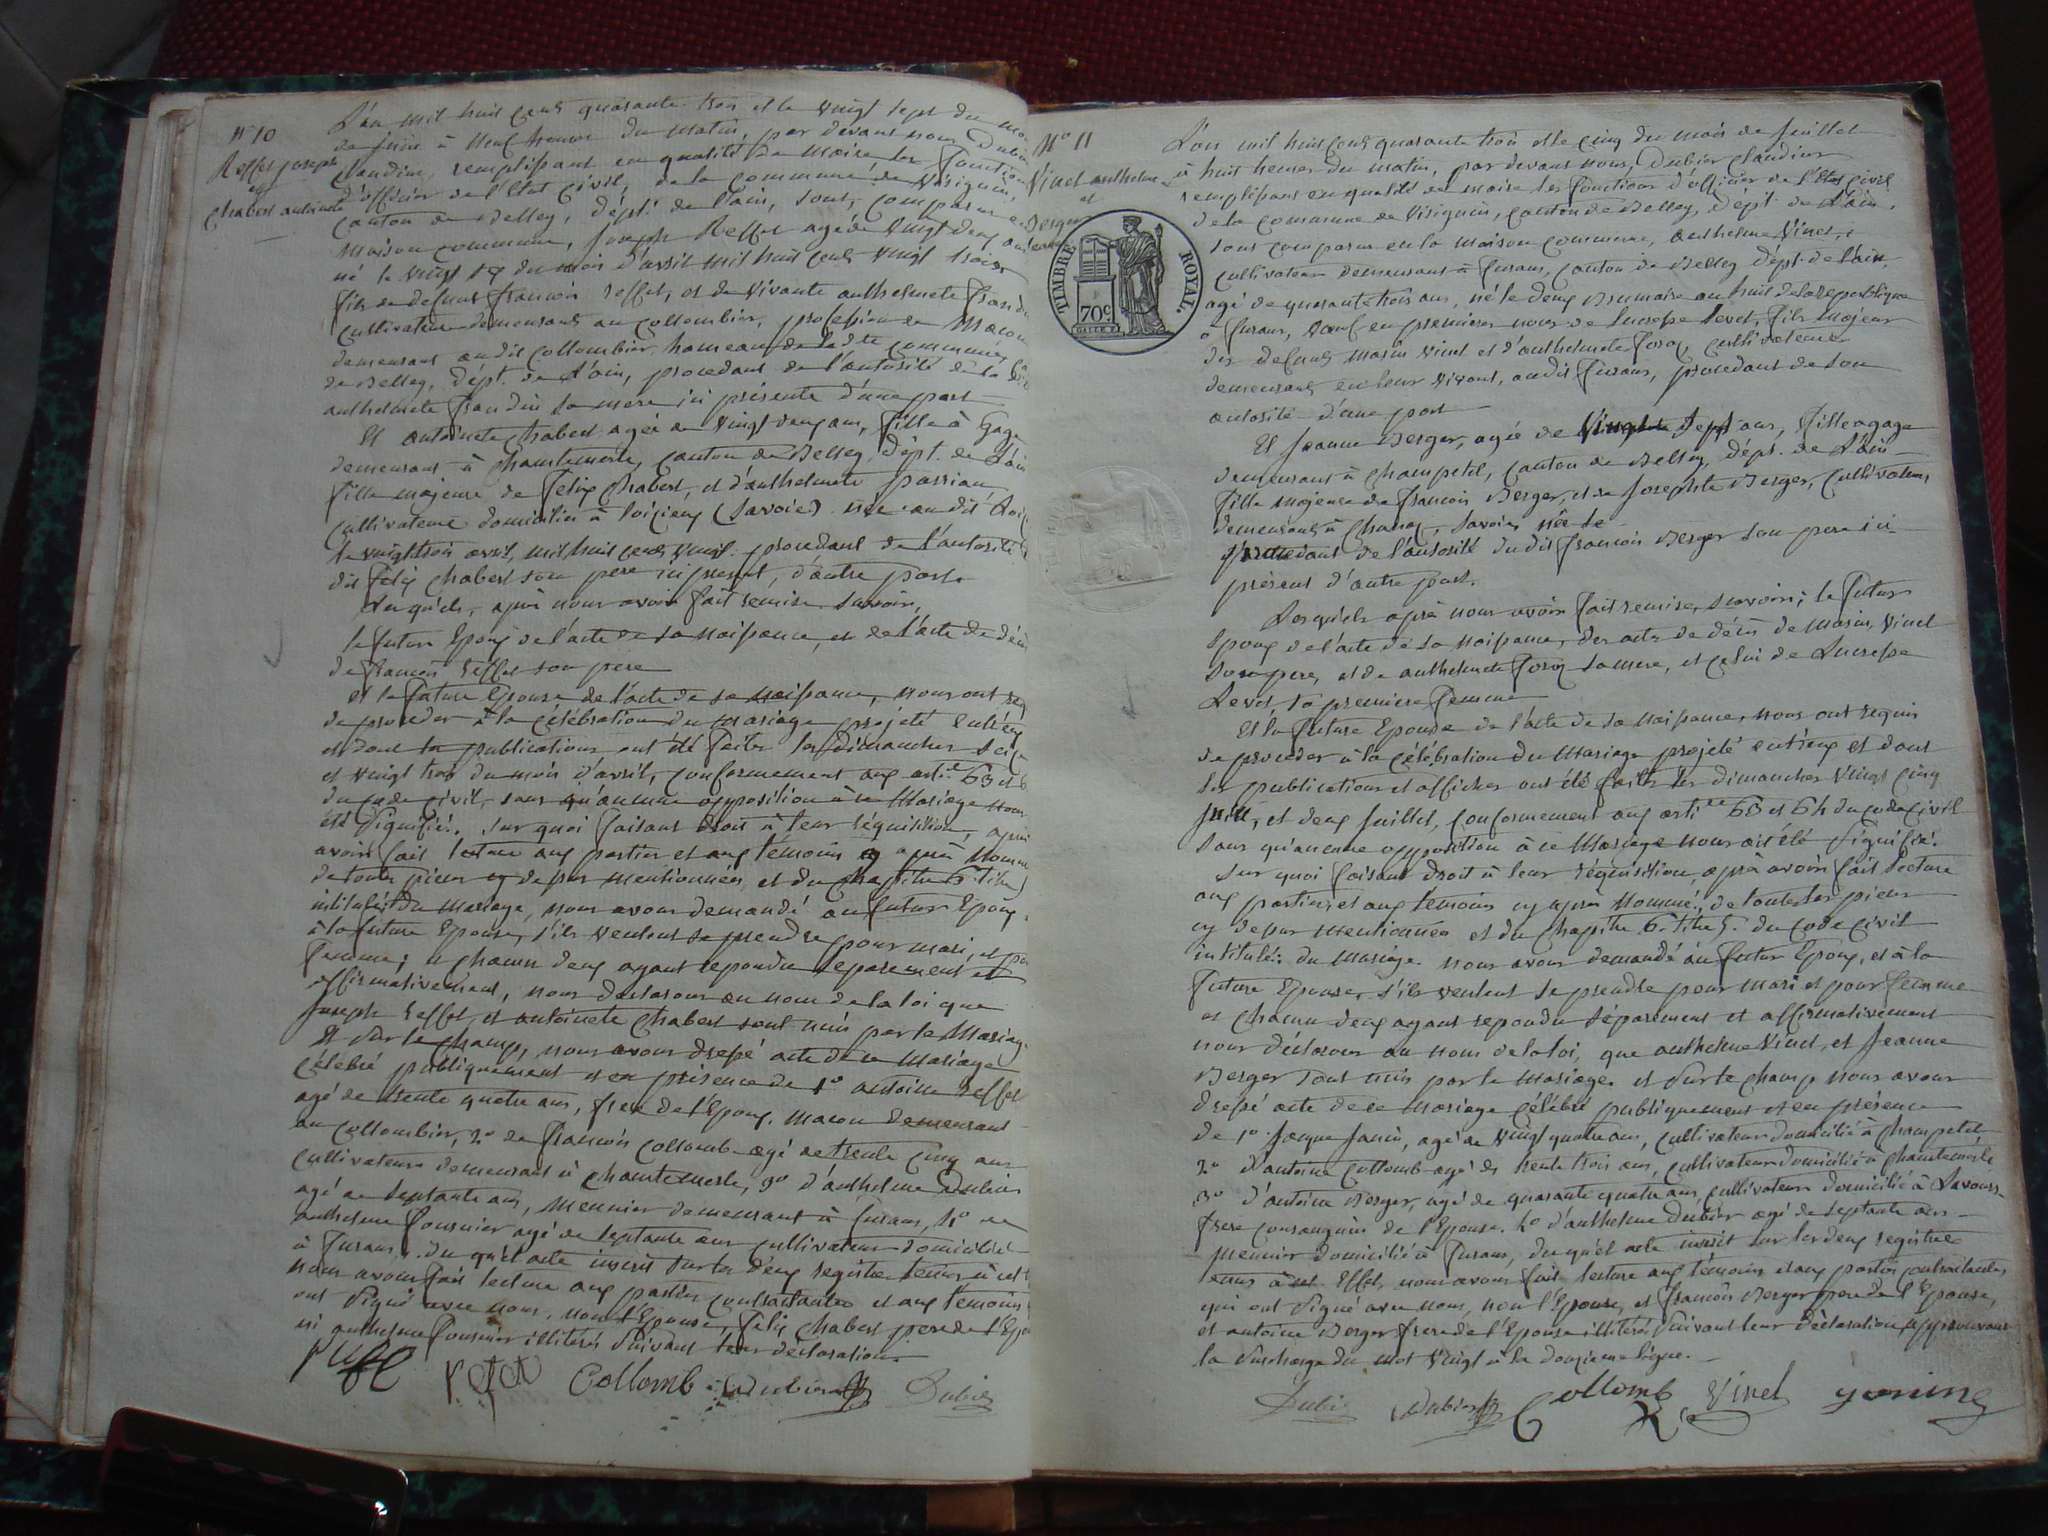 N° 10
Reffet joseph
et
Chabert antoinete
L'an mil huit cent quarante trois et le vingt sept du mois
de juin à neuf heures du matin, par devant nous Dubier
Claudius, remplissant en qualité de maire, les fonctions
d'officier de l'Etat civil, de la commune de Virignin,
canton de Belley, dépt. de l'ain, sont, comparus en
maison commune, Joseph Reffet agé de vingt deux ans
né le vingt six du mois d'avril mil huit cent vingt
fils de defunt francois reffet, et de vivante anthelmete frandin
cultivateurs demeurant au collombier, profession de macon
demeurant au dit collombier hameau de la dte commune
de Belley, dépt. de l'ain, procedant de l'autorité de la dite
anthelmete frandin sa mere ici présente d'une part
Et antoinete chabert agée de vingt deux ans, fille à gage
demeurant à chantemerle, canton de Belley, dépt. de l'ain
fille majeure de felix chabert, et d'anthelmete passian
cultivateurs domiciliés à (Savoie) née au dit
le vingt trois avril, mil huit cent vingt procedant de l'autorité
dit felix chabert son pere ici présent, d'autre part.
Lesquels, après nous avoir fait remise, savoir,
le futur Epoux de l'acte de sa naissance, et de l'acte de décès
de francois reffet son pere
et la future Epouse de l'acte de sa naissance, nous ont req
de proceder à la célébration du mariage projeté entr'eux
et dont les publications ont été faites les dimanches seize
et vingt trois du mois d'avril, conformement aux artic. 63 et 6
du code civil, sans qu'aucune opposition à ce mariage nous
été signifiée. sur quoi faisant droit à leur réquisition, après
avoir fait lecture aux parties et aux temoins cy après nommés
de toutes pieces cy dessus mentionnées, et du chapitre 6. titre 5
intitulé: du mariage, nous avons demandé au futur Epoux,
à la future Epouse, s'ils veulent se prendre pour mari, et po
femme; et chacun deux ayant repondu séparement et
affirmativement, nous declarons au nom de la loi que
Joseph reffet et antoinete chabert sont unis par le mariage
Et sur le champ, nous avons dressé acte de ce mariage
célébré publiquement et en présence de 1° antoine reffet
agé de trente quatre ans, frere de l'Epoux, macon demeurant
au collombier, 2° de francois collomb agé de trente cinq ans
cultivateur demeurant à chantemerle, 3° d'anthelme Dubier
agé de septante ans, meunier demeurant à furans, 4° de
anthelme fournier agé de septante ans cultivateur domicilié
à furans. du quel acte inscrit sur les deux registres tenus à cet
nous avons fait lecture aux parties contractantes et aux temoins
ont signé avec nous, non l'Epouse, felix chabert pere de l'Epo
ni anthelme fournier illitérés suivant leur déclaration
Collomb Dubier Dubier
N° 11
Vinet anthelme
et
Berger
TIMBRE ROYAL
70 c.
L'an mil huit cent quarante trois et le cinq du mois de juillet
à huit heures du matin, par devant nous, Dubier Claudius
remplissant en qualité de maire les fonctions d'officier de l'Etat civil
de la commune de Virignin, canton de Belley, dépt. de l'ain,
sont comparus en la maison commune, anthelme Vinet,
cultivateur demeurant à furans, canton de Belley dépt. de l'ain,
agé de quarante trois ans, né le deux Brumaire an huit de la république
à furans, veuf en premieres noces de lucresse Levet, fils majeur
des defunts marin Vinet et d'anthelmete foraz, cultivateurs
demeurant en leur vivant, au dit furans, procedant de son
autorité d'une part
Et Jeanne Berger, agée de vingt sept ans, fille a gage
demeurant à champetel, canton de Belley, dépt. de l'ain
fille majeure de francois Berger, et de Josephte Berger, cultivateurs
demeurant à chanaz, Savoie, née le
procedant de l'autorité du dit francois Berger son pere ici
présent d'autre part.
Lesquels après nous avoir fait remise, savoir; le futur
Epoux de l'acte de sa naissance, des actes de décès de marin Vinet
son pere, et de anthelmete foraz sa mere, et celui de Lucresse
Levet, sa premiere femme
Et la future Epouse de l'acte de sa naissance, nous ont requis
de proceder à la célébration du mariage projeté entr'eux et dont
les publications et affiches ont été faites les dimanches vingt cinq
juin, et deux juillet, conformement aux artic. 63 et 64 du code civil
sans qu'aucune opposition à ce mariage nous ait été signifiée.
sur quoi faisant droit à leur réquisition, après avoir fait lecture
aux parties, et aux temoins cy après nommés, de toutes les pieces
cy dessus mentionnées et du chapitre 6. titre 5. du code civil
intitulé: du mariage. nous avons demandé au futur Epoux, et à la
future Epouse, s'ils veulent se prendre pour mari et pour femme
et chacun deux ayant repondu séparement et affirmativement
nous déclarons au nom de la loi, que anthelme Vinet, et Jeanne
Berger sont unis par le mariage. et sur le champ nous avons
dressé acte de ce mariage célébré publiquement et en présence
de 1° Jacque Janin, agé de vingt quatre ans, cultivateur domicilié à champetel
2° d'antoine collomb agé de trente trois ans, cultivateur domicilié à chantemerle
3° d'antoine Berger, agé de quarante quatre ans, cultivateur domicilié à Lavours,
frere consanguin de l'Epouse. 4° d'anthelme Dubier agé de septante ans
meunier domicilié à furans, du quel acte inscrit sur les deux registres
tenus à cet Effet, nous avons fait lecture aux témoins et aux parties contractantes
qui ont signé avec nous, non l'Epouse, et francois Berger pere de l'Epouse,
et antoine Berger frere de l'Epouse illitérés suivant leur déclaration approuvant
la surcharge du mot vingt à la douzieme ligne.
Dubier Dubier Collomb Vinet janin